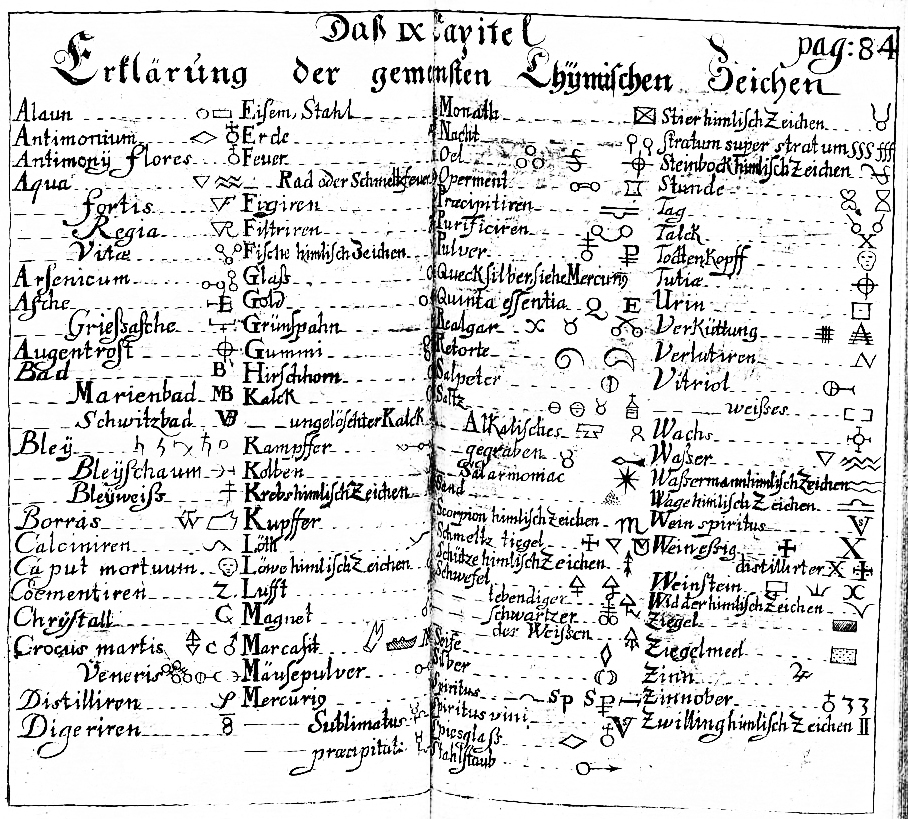 Daß IX Capitel
pag: 84
Erklärung der gemeinsten Chÿmischen Zeichen
Alaun
Antimonium
Antimonÿ flores
Aqua
fortis
Regia
Vitæ
Arsenicum
Asche
Griessasche
Augentrost
Bad B
Marienbad MB
Schwitzbad VB
Bleÿ
Bleÿschaum
Bleÿweiss
Borras
Calciniren
Caput mortuum
Coementiren Z
Chrÿstall
Crocus martis
Veneris
Distilliren
Digeriren
Eisem, Stahl
Erde
Feuer
Rad oder Schmeltzfeuer
Figiren
Filtriren
Fische himlisch Zeichen
Glaß
Gold
Grünspahn
Gummi
Hirschhorn
Kalck
ungelöschter Kalck
Kampffer
Kolben
Krebs himlisch Zeichen
Kupffer
Löth
Löwe himlisch Zeichen
Lufft
Magnet
Marcasit
Mäusepulver
Mercurig
Sublimatus
præcipitat:
Monath
Nacht
Oel
Operment
Præcipitiren
Purificiren
Pulver
Quecksilber siehe Mercurig
Quinta essentia Q E
Realgar
Retorte
Salpeter
Saltz
Alkalisches
gegraben
Sal armoniac
Sand
Scorpion himlisch Zeichen
Schmeltz tiegel
Schütze himlisch Zeichen
Schwefel
lebendiger
schwartzer
des Weissen
Seife
Silber
Spiritus Sp
Spiritus vini
Spiesglass
Stahlstaub
Stier himlisch Zeichen
Stratum super stratum SSS
Steinbock himlisch Zeichen
Stunde
Tag
Talck X
Todten Kopff
Tutiæ
Urin
Verküttung
Verlutiren
Vitriol
weißes
Wachs
Wasser
Wassermann himlisch Zeichen
Wage himlisch Zeichen
Wein spiritus
Wein eßig
distillirter
Weinstein
Widder himlisch Zeichen
Ziegel
Ziegelmeel
Zinn
Zinnober
Zwilling himlisch Zeichen II